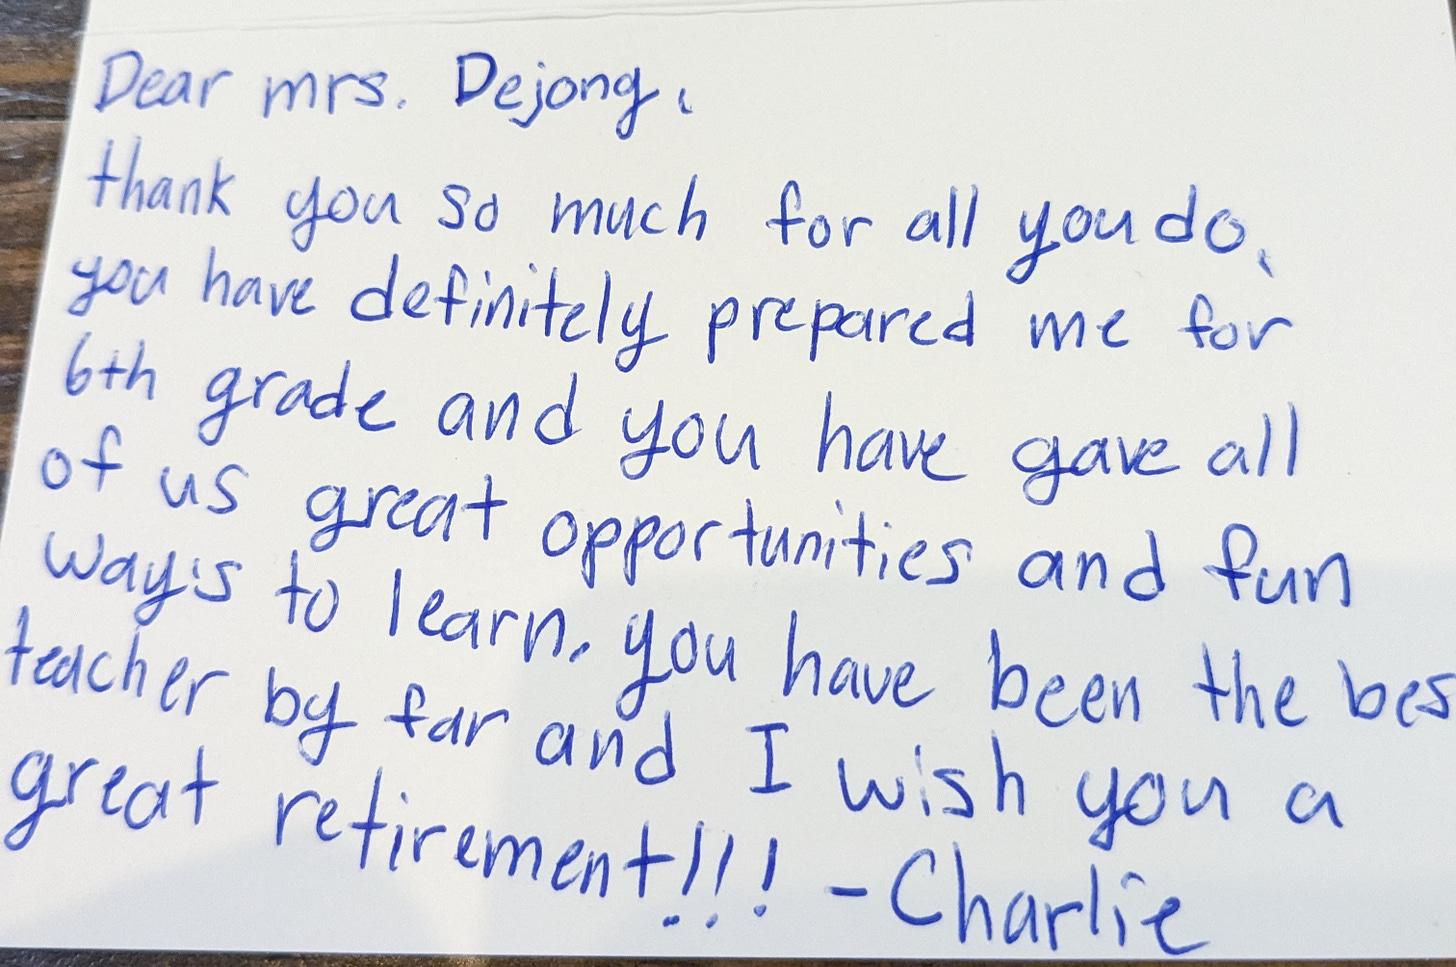 Dear mrs. Dejong,
thank you so much for all you do,
you have definitely prepared me for
6th grade and you have gave all
of us great opportunities and fun
way's to learn. you have been the bes
teacher by far and I wish you a
great retirement!!! -Charlie